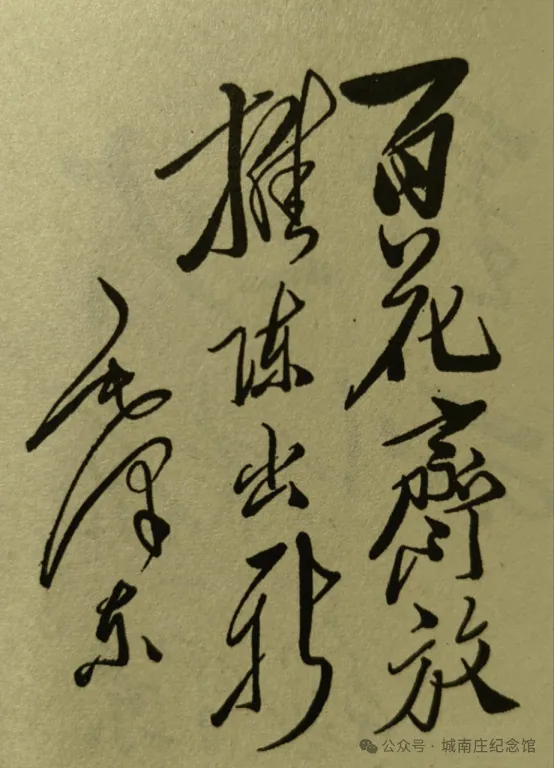 百花齊放
推陈出新
毛泽东
公众号·城南庄纪念馆